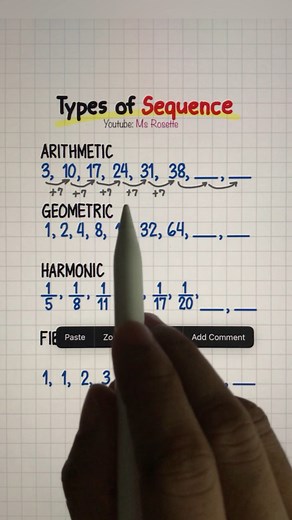 Types of Sequence
Youtube: Ms Rosette
ARITHMETIC
3, 10, 17, 24, 31, 38, __, __
+7 +7 +7 +7 +7
GEOMETRIC
1, 2, 4, 8, 32, 64, __, __
HARMONIC
1/5, 1/8, 1/11 1/17, 1/20, __, __
Paste Add Comment
1, 1, 2, 3